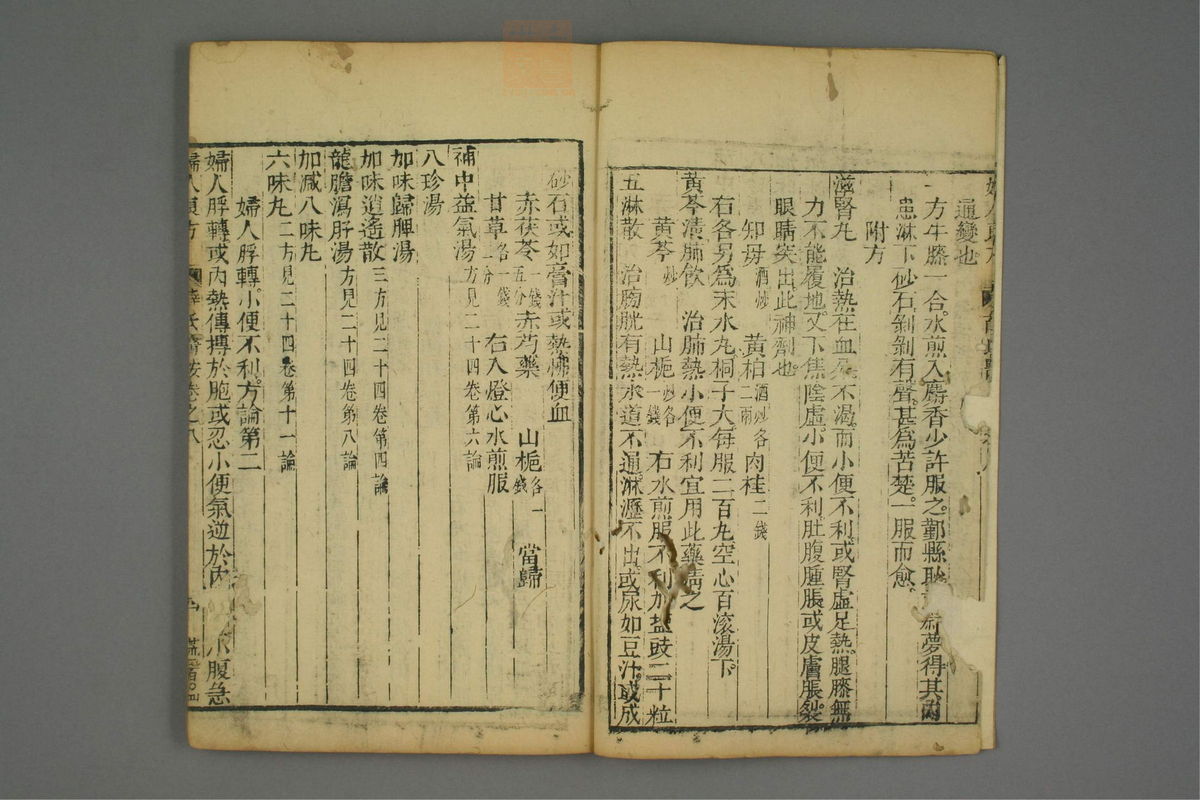 通變也
一方牛膝一合水煎入麝香少許服之鄞縣耿夢得其內
患淋下砂石剝剝有聲甚為苦楚一服而愈
附方
滋腎丸 治熱在血不渴而小便不利或腎虛足熱腿膝無
力不能履地又下焦陰虛小便不利肚腹腫脹或皮膚脹裂
眼睛突出此神劑也
知母酒炒 黃柏酒炒各二兩 肉桂二錢
右各另為末水丸桐子大每服二百丸空心百滾湯下
黃芩清肺飲 治肺熱小便不利宜用此藥清之
黃芩炒 山梔炒各一錢 右水煎服不利加盐豉二十粒
五淋散 治膀胱有熱水道不通淋瀝不出或尿如豆汁或成
砂石或如膏汁或熱怫便血
赤茯苓一錢五分 赤芍藥 山梔各一錢 當歸
甘草各一錢二分 右入燈心水煎服
補中益氣湯方見二十四卷第六論
八珍湯
加味歸脾湯
加味逍遙散三方見二十四卷第四論
龍膽瀉肝湯方見二十四卷第八論
加減八味丸
六味丸二方見二十四卷第十一論
婦人脬轉小便不利方論第二
婦人脬轉或內熱傳搏於胞或忍小便氣逆於內 小腹急
婦人良方 薛氏醫按卷之八